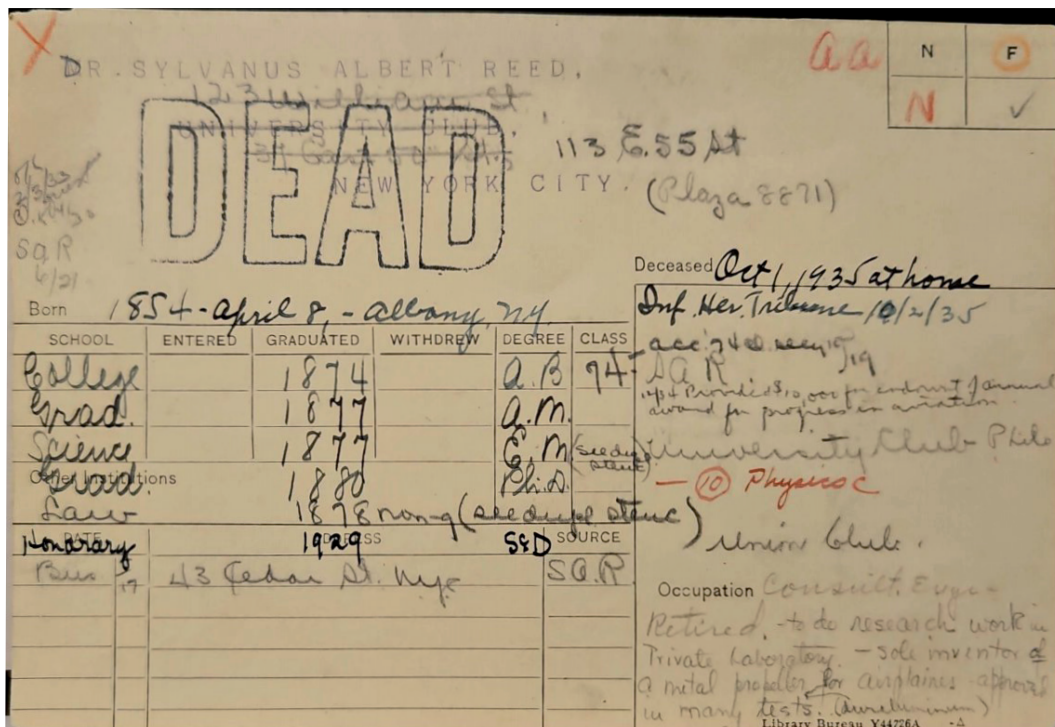 aa
N F
N ✓
DR. SYLVANUS ALBERT REED.
123 William St
UNIVERSITY CLUB.
113 E. 55 St
NEW YORK CITY.
(Plaza 8871)
DEAD
SAR
6/21
Deceased Oct 1, 1935 at home
Inf. Her. Tribune 10/2/35
Born 1854 - April 8, - Albany, N.Y.
SCHOOL ENTERED GRADUATED WITHDREW DEGREE CLASS
College 1874 A.B 74
Grad. 1877 A.M.
Science 1877 E.M (see dupl stenc)
Other Institutions
Grad. 1880 Ph.D.
Law 1878 non-g (see dupl stenc)
DATE ADDRESS SOURCE
Honorary 1929 ScD
Bus 17 43 Cedar St. Nyc SAR
SAR
Provided $10,000 for endmt of annual
award for progress in aviation
University Club Phila
— 10 Physics c
Union Club.
Occupation Consult. Engr -
Retired, - to do research work in
Private Laboratory. - sole inventor of
a metal propeller for airplaines approved
in many tests. (duraluminum)
Library Bureau Y44726A